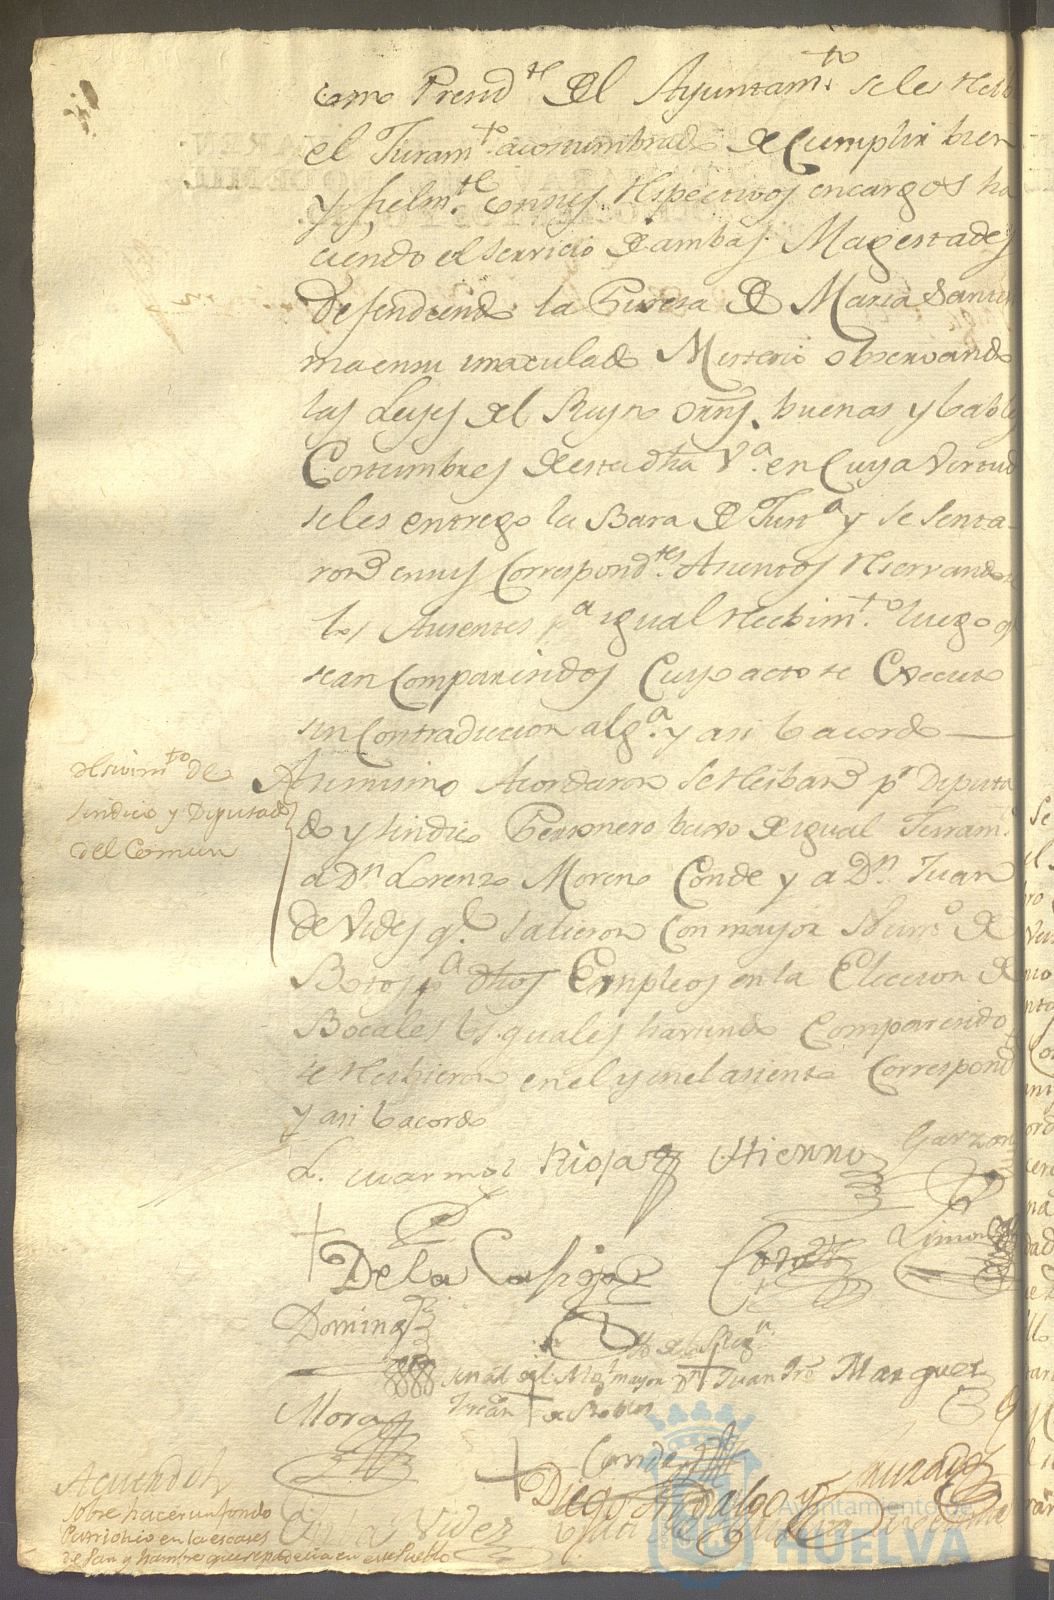 como Presid.te del Ayuntam.to se les recib
el Juram.to acostumbrado de Cumplir bien
y fielm.te en sus respectivos encargos ha
ciendo el servicio de ambas Magestades
defendiendo la Pureza de Maria Santisi
ma en su inmaculado Misterio observando
las Leyes del Reyno orns. buenas y loables
Costumbres de esta dha V.a en Cuya Virtud
se les entrego la Bara de Just.a y se senta-
ron en sus Correspond.tes Asientos reservando
los Ausentes p.a igual recibim.to luego q.
sean Comparecidos Cuyo acto se Executo
sin Contradiccion alg.a y asi lo acordo
Asimismo Acordaron se reciban p.r Diputa
do y sindico Personero baxo de igual Juram.to
a Dn. Lorenzo Moreno Conde y a Dn. Juan
de Vides q.e salieron con mayor Num.o de
Botos p.a dhos Empleos en la Eleccion de
Bocales los quales haviendo Comparecido
se recibieron en el y en el asiento Correspond
y asi lo acordo
recivim.to de
sindico y Diputado
del Comun
L. Rioja
Garzon
De la
Limon
Doming
señal del Alg.l mayor Dn. Juan Fr.co Marquez
Mora
Conde
Diego Hidalgo
Videz
Acuerdo
sobre hacer un fondo
en la escases
de pan y hambre que se padecia en este Pueblo
Ayuntamiento de
HUELVA